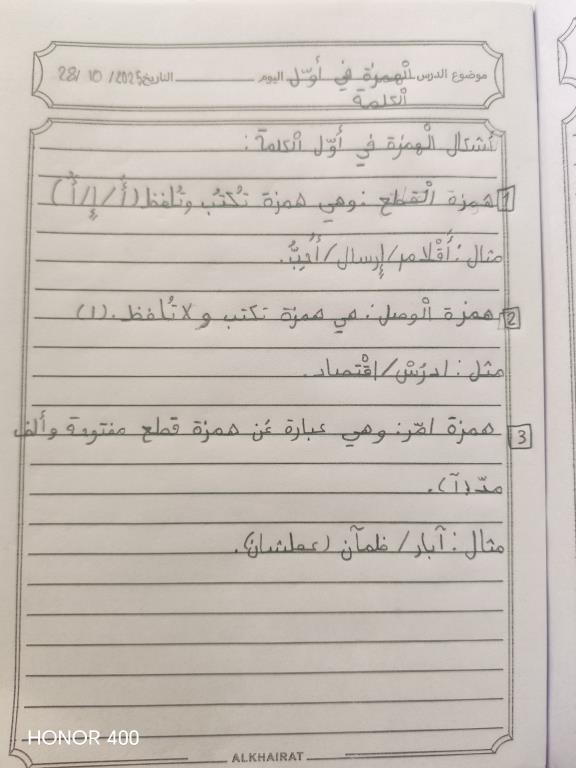 موضوع الدرس الْهمزة في أوّل اليوم ــــــــ التاريخ 28/ 10 /2025
الكلمة
أشكال الْهمزة في أوّل الكلمة :
1 همزة الْقطع : وهي همزة تُكتبُ وتُلفظ (أَ/إِ/أُ)
مثال : أَقْلام/إِرسال/أُحِبُّ.
2 همزة الْوصل : هي همزة تكتب ولا تُلفظ. (ا)
مثل : ادرُسْ/اقْتصاد.
3 همزة المّد : وهي عبارة عَن همزة قطع مفتوحة وألف
مدّ (آ).
مثال : آبار/ ظمآن (عطشان).
HONOR 400
ALKHAIRAT